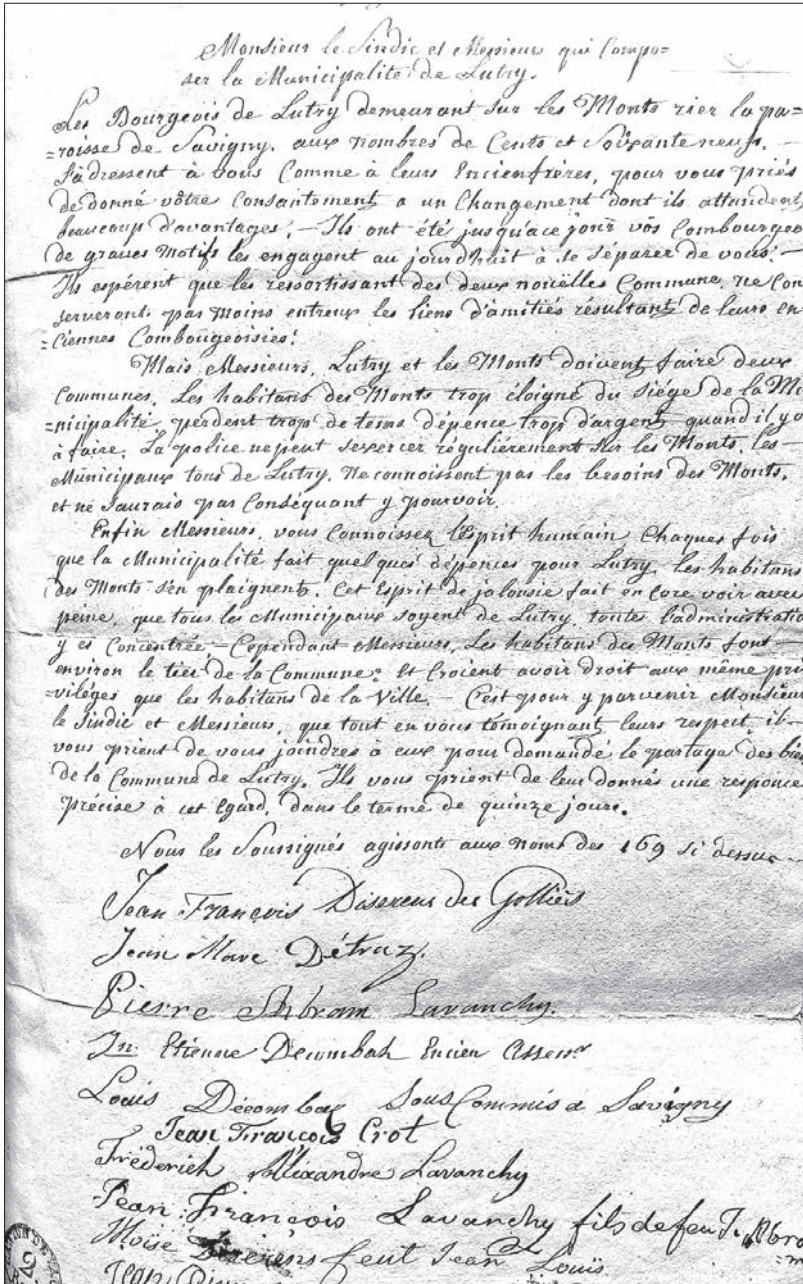 Monsieur le Sindic et Messieurs qui Compo=
ser la Municipalité de Lutry.
Les Bourgeois de Lutry demeurant sur les Monts rier la pa=
=roisse de Savigny. aux nombres de Cents et Soixante neuf. —
S'adressent à vous Comme à leurs Encienfrères, pour vous priés
de donné vôtre Consantement a un Changement dont ils attandent
beaucoup d'avantages. — Ils ont été jusqu'à ce jour vôs Combourgeo
de graves motifs les engagent au jourd'huit à se séparer de vous. —
Ils espérent que les ressortissant des deux nouëlles Commune, ne Con
serveront pas moins entreux les liens d'amitiés résultant de leurs en
=ciennes Combougeoisies.
Mais Messieurs, Lutry et les Monts doivent faire deux
Communes, Les habitans des Monts trop éloigné du Siége de la Mu
=nicipalité, perdent trop de tems dépence trop d'argent quand il y a
à faire. La police ne peut sexercer régulièrement sur les Monts, les —
Municipaux tous de Lutry, ne connoissent pas les besoins des Monts,
et ne Saurais par Conséquant y pourvoir.
Enfin Messieurs, vous Connoissez l'Esprit humain, Chaques fois
que la Municipalité fait quelques dépences pour Lutry, les habitans
des Monts s'en plaignent. Cet Esprit de jalousie fait en Core voir avec
peine, que tous les Municipaux soyent de Lutry, toutes l'administratio
y es Concentrée — Cependant Messieurs, Les habitans des Monts font —
environ le tiés de la Commune, Et Croient avoir droit aux même pri
=viléges que les habitans de la Ville. — C'est pour y parvenir Monsieur
le Sindic et Messieurs, que tout en vous témoignant leurs respect, il —
vous prient de vous joindres à eux pour demandé le partage des bie
de la Commune de Lutry. Ils vous prient de leur donnés une responce
précise à cet Egard, dans le terme de quinze jours.
Nous les Soussignés agissants aux noms des 169 si dessus —
Jean François Diserens des Golliés
Jean Marc Détraz.
Pierre Abram Lavanchy.
Jn. Etienne Decombaz Encien Assesr
Louis Décombaz Sous Commis à Savigny
Jean François Crot
Fréderich Alexandre Lavanchy
Jean François Lavanchy fils de feu J. Abra
Moïse Diserens feut Jean Louis
Jean
2